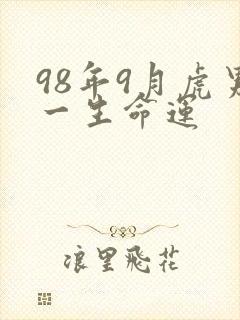 98年9月虎男
一生命运
浪里飛花